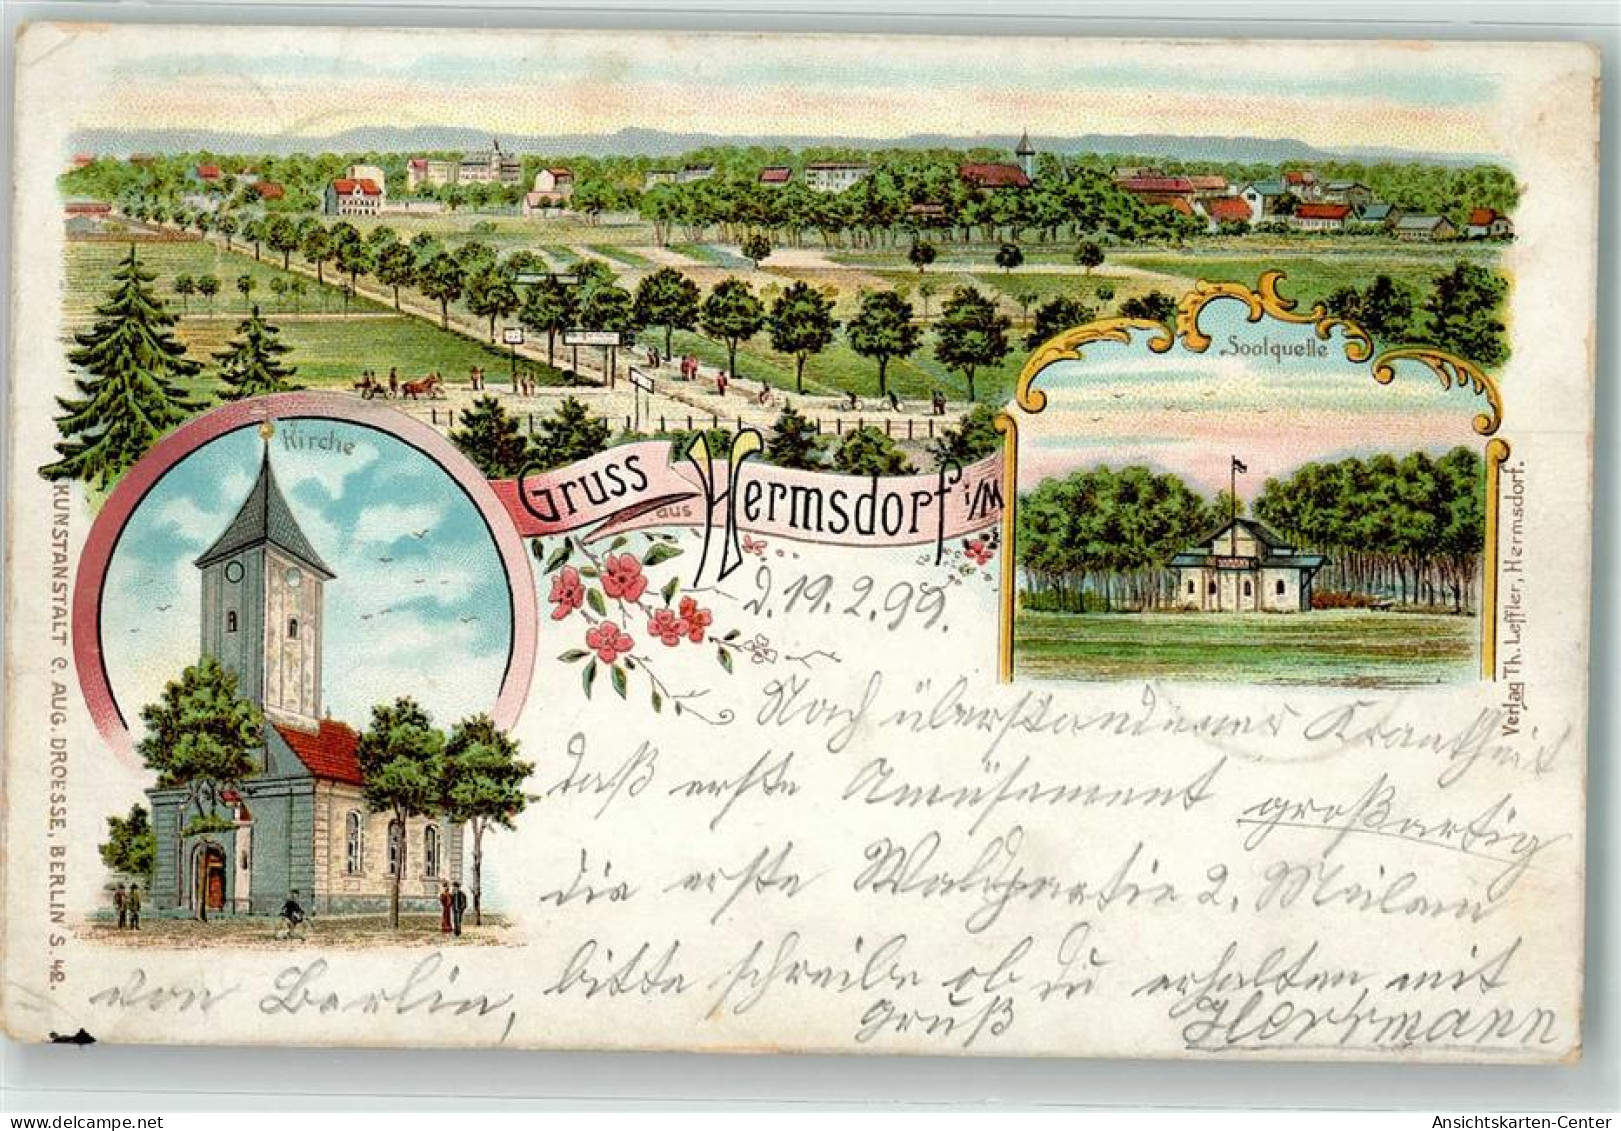 Soolquelle
Kirche
Gruss aus Hermsdorf i/M
d. 19. 2. 99.
Nach überstandener Krankheit
daß erste Amüsement großartig
die erste Waldpartie 2. Meilen
von Berlin, bitte schreibe ob du erhalten, mit
Gruß Herrmann
KUNSTANSTALT C. AUG. DROESSE, BERLIN S. 42.
Verlag Th. Leffler, Hermsdorf.
Ansichtskarten-Center